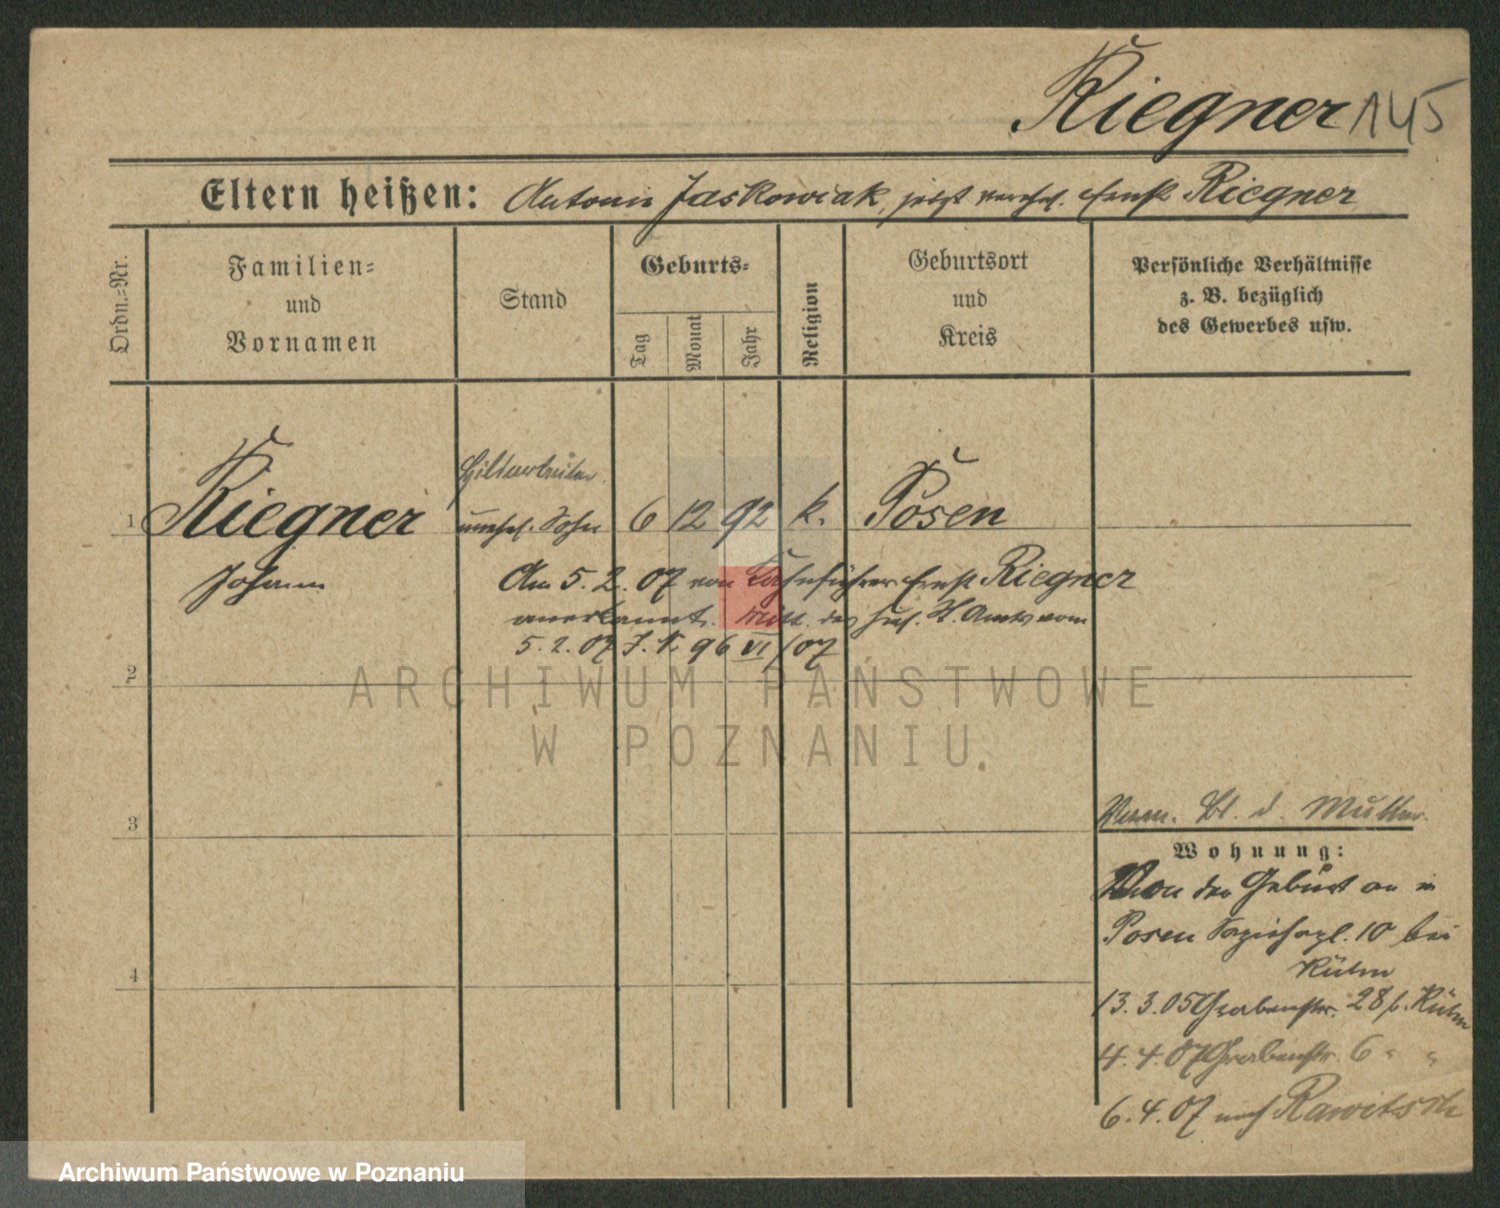 Riegner 145
Eltern heißen: Antonie Jaskowiak, jetzt verehel. Ernst Riegner
Ordn.-Nr.
Familien-
und
Vornamen
Stand
Geburts-
Tag
Monat
Jahr
Religion
Geburtsort
und
Kreis
Persönliche Verhältnisse
z. B. bezüglich
des Gewerbes usw.
1 Riegner unehel. Sohn 6 12 92 k. Posen
Johann
Am 5. 2. 07 von Ernst Riegner
anerkannt. Mitt. des St. Amts vom
5. 2. 07 96 VI/07
2
3
4
Verm. Bl. d. Mutter
Wohnung:
Von der Geburt an in
Posen 10 bei
Kühn
13. 3. 05 Grabenstr. 28 b. Kühn
4. 4. 07 Grabenstr. 6 " "
6. 4. 07 nach Rawitsch
ARCHIWUM PAŃSTWOWE
W POZNANIU
Archiwum Państwowe w Poznaniu